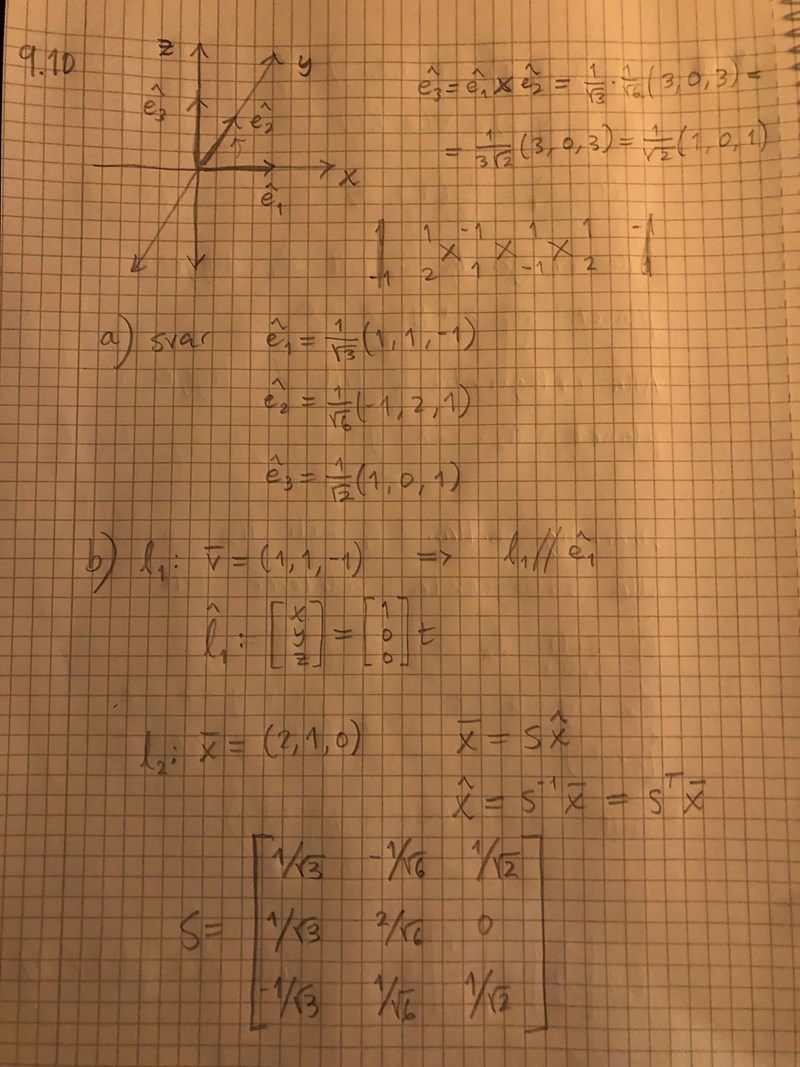 9.10
z
y
x
ê₃
ê₂
ê₁
ê₃ = ê₁ × ê₂ = 1/√3 · 1/√6 (3, 0, 3) =
= 1/(3√2) (3, 0, 3) = 1/√2 (1, 0, 1)
1 1 -1 1 1 -1
× × ×
-1 2 1 -1 2 1
a) svar ê₁ = 1/√3 (1, 1, -1)
ê₂ = 1/√6 (-1, 2, 1)
ê₃ = 1/√2 (1, 0, 1)
b) l₁: v̄ = (1, 1, -1) => l₁ // ê₁
l̂₁: [x y z] = [1 0 0] t
l₂: x̄ = (2, 1, 0) x̄ = S x̂
x̂ = S⁻¹ x̄ = Sᵀ x̄
1/√3 -1/√6 1/√2
S = 1/√3 2/√6 0
-1/√3 1/√6 1/√2